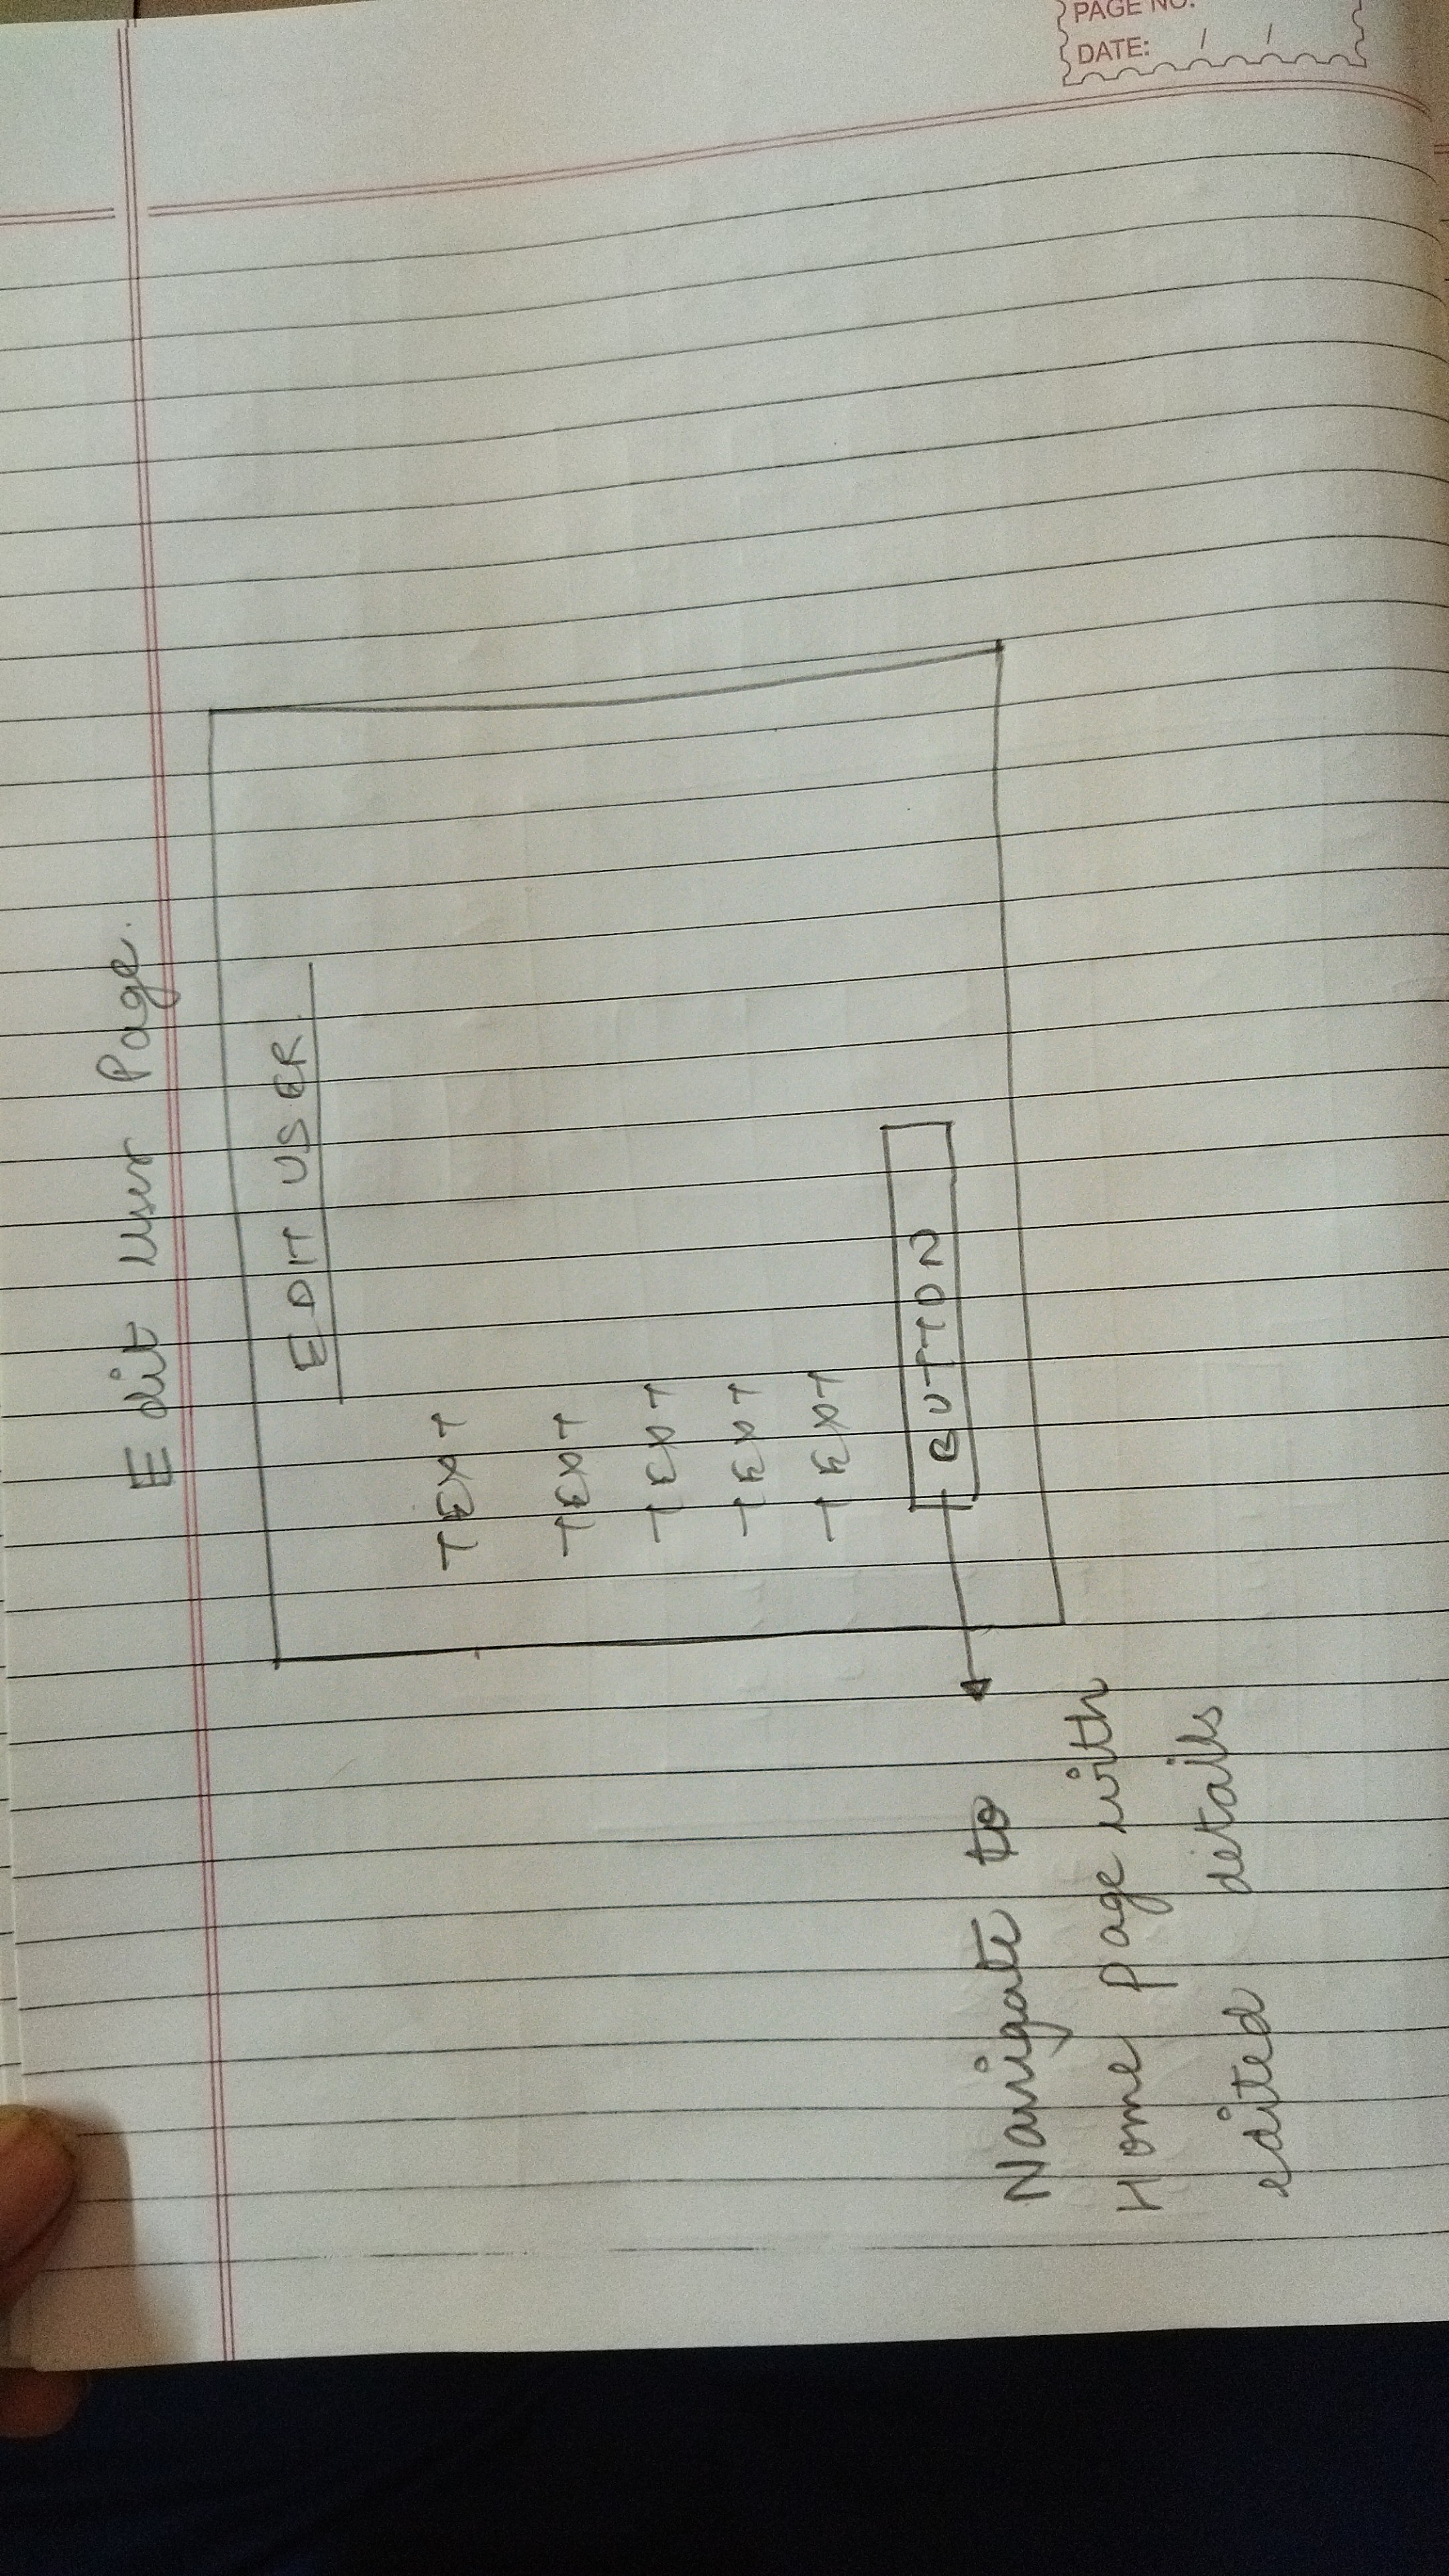 PAGE NO.
DATE: / /
Edit User Page.
EDIT USER
TEXT
TEXT
TEXT
TEXT
TEXT
BUTTON
Navigate to
Home page with
edited details